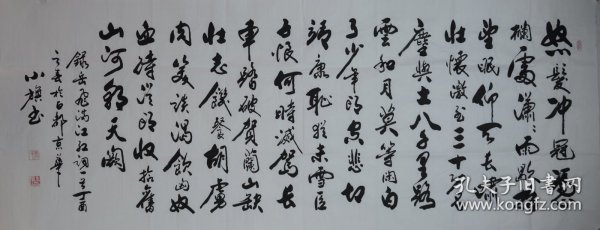 怒髮冲冠憑
欄處瀟瀟雨歇
望眼仰天長嘯
壯懷激烈三十
塵與土八千里路
雲和月莫等閒白
了少年頭空悲切
靖康恥猶未雪臣
子恨何時滅駕長
車踏破賀蘭山缺
壯志饑餐胡虜
肉笑談渴飲匈奴
血待從頭收拾舊
山河朝天闕
錄岳飛滿江紅詞一首丁酉
於古都京華
小旗書
孔夫子旧书网
book.kongfz.com